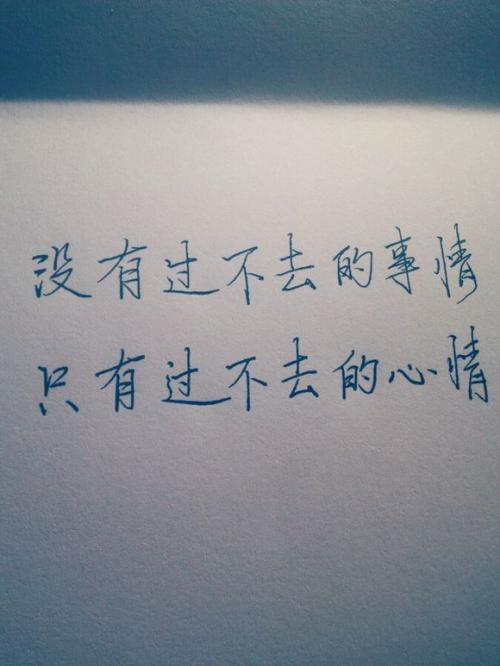 没有过不去的事情
只有过不去的心情